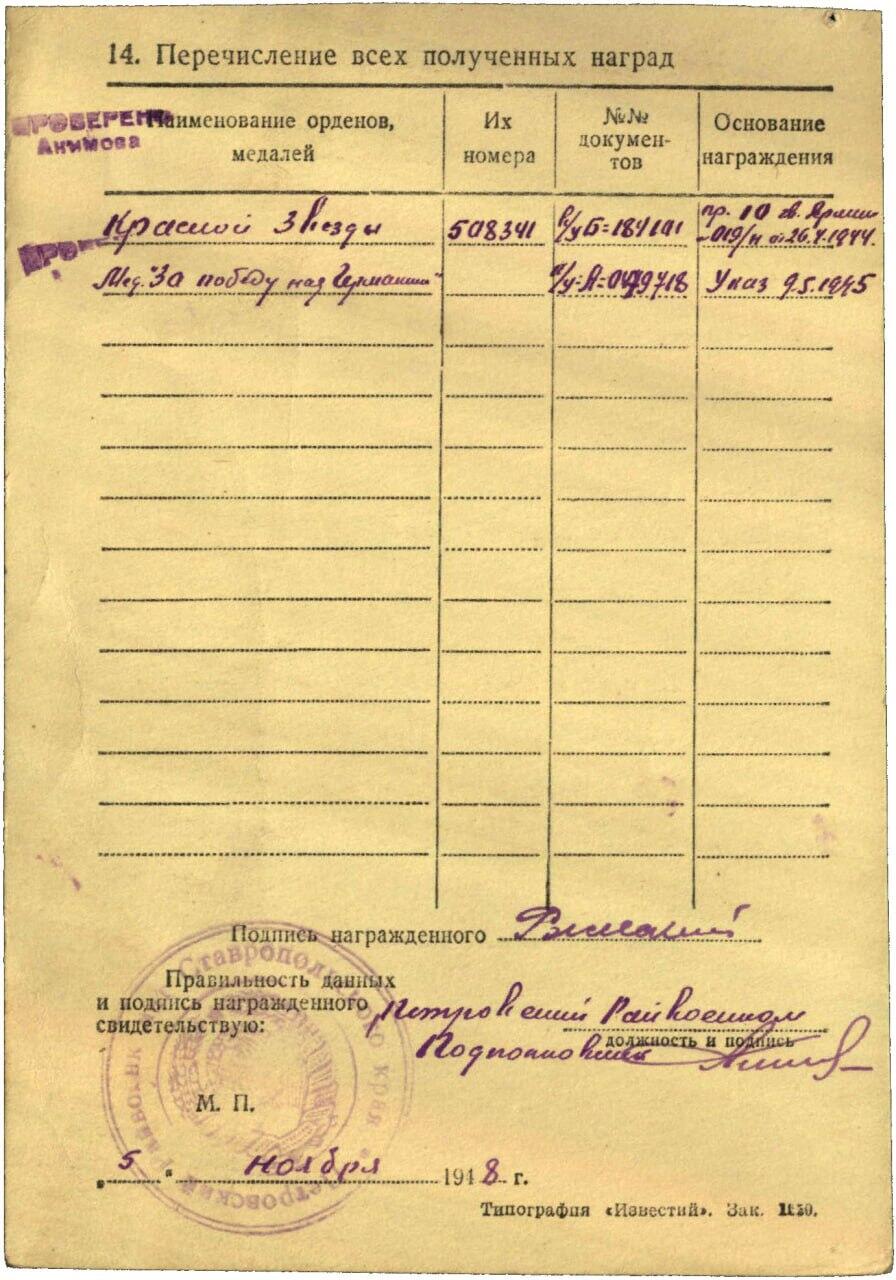 14. Перечисление всех полученных наград
ПРОВЕРЕНО
Акимова
Наименование орденов,
медалей
Их
номера
№№
докумен-
тов
Основание
награждения
Красной Звезды
508341
в/у Б=184191
пр. 10 гв. Армии
-019/н от 26.4.1944.
Мед. "За победу над Германией"
Указ 9.5.1945
Подпись награжденного
Правильность данных
и подпись награжденного
свидетельствую:
Петровский Райвоенком
должность и подпись
Подполковник
Ставропольского края
Петровский Райвоенк
М. П.
„ 5 " ноября 1948 г.
Типография «Известий». Зак.